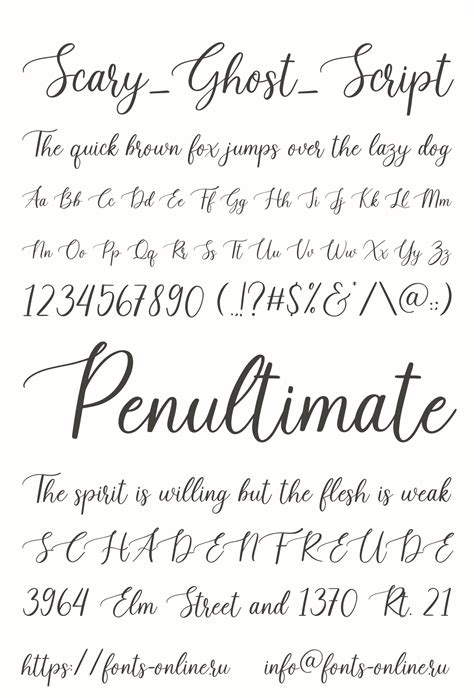 Scary_Ghost_Script
The quick brown fox jumps over the lazy dog
Aa Bb Cc Dd Ee Ff Gg Hh Ii Jj Kk Ll Mm
Nn Oo Pp Qq Rr Ss Tt Uu Vv Ww Xx Yy Zz
1234567890 (.,!?#$%&*/\@:;)
Penultimate
The spirit is willing but the flesh is weak
SCHADENFREUDE
3964 Elm Street and 1370 Rt. 21
https://fonts-online.ru info@fonts-online.ru